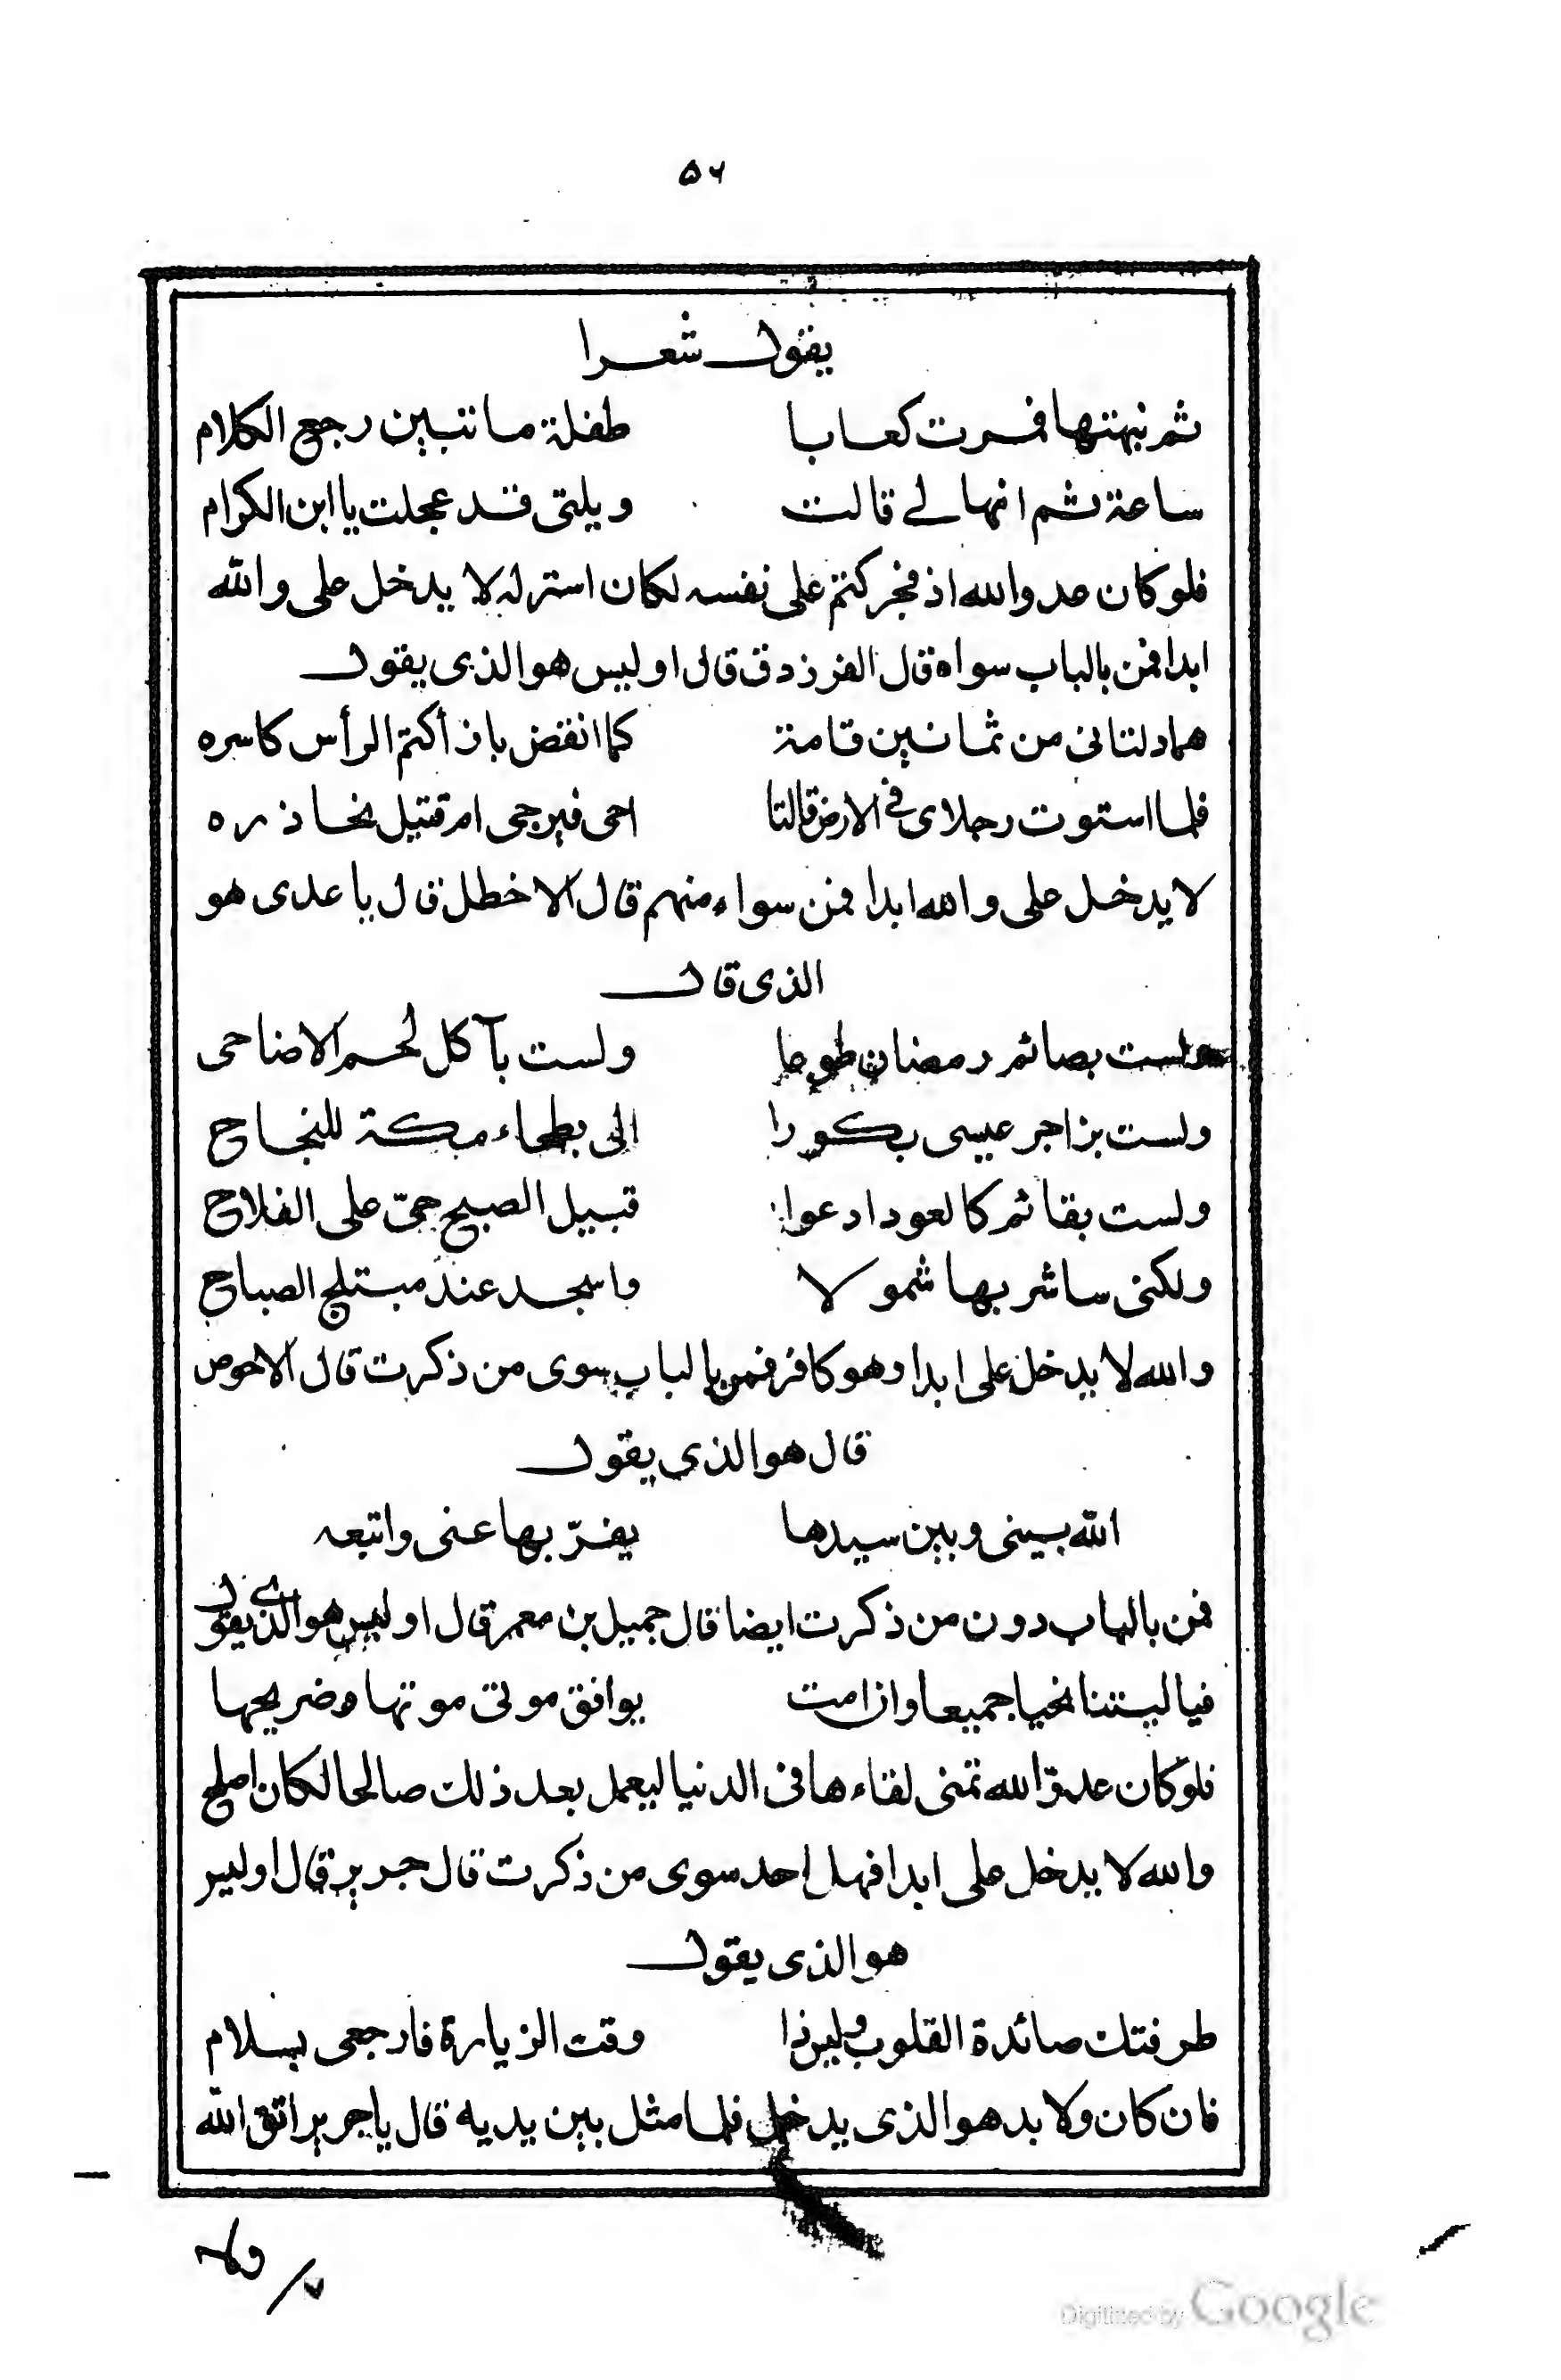 ٥٦
يقول شعرا
ثم نبهتها فمرت كعابا طفلة ما تتبين رجع الكلام
ساعة ثم انها لي قالت ويلتى قد عجلت يا ابن الكرام
فلو كان عدو الله اذ فجر كتم على نفسه لكان استر له لا يدخل على والله
ابدا فمن بالباب سواه قال الفرزدق قال اوليس هو الذى يقول
هما دلتانى من ثمانين قامة كما انقض باز أكتم الرأس كاسره
فلما استوت رجلاى فى الارض قالتا احى فيرجى ام قتيل نحاذره
لا يدخل على والله ابدا فمن سواء منهم قال الاخطل قال يا عدى هو
الذى قال
ولست بصائم رمضان طوعا ولست بآكل لحم الاضاحى
ولست بزاجر عيسى بكورا الى بطحاء مكة للنجاح
ولست بقائم كالعود ادعو قبيل الصبح حىّ على الفلاح
ولكنى ساشربها شمولا واسجد عند مبتلج الصباح
والله لا يدخل على ابدا وهو كافر فمن بالباب سوى من ذكرت قال الاحوص
قال هو الذى يقول
الله بينى وبين سيدها يفرّ بها عنى واتبعه
فمن بالباب دون من ذكرت ايضا قال جميل بن معمر قال اوليس هو الذي يقول
فيا ليتنا نحيا جميعا وان امت يوافق موتى موتها وضريحها
فلو كان عدوّ الله تمنى لقاءها فى الدنيا ليعمل بعد ذلك صالحا لكان اصلح
والله لا يدخل على ابدا فهل احد سوى من ذكرت قال جرير قال اوليس
هو الذى يقول
طرفتك صائدة القلوب وليس ذا وقت الزيارة فارجعى بسلام
فان كان ولا بد هو الذى يدخل فلما مثل بين يديه قال يا جرير اتق الله
ولا
٧
Digitized by Google